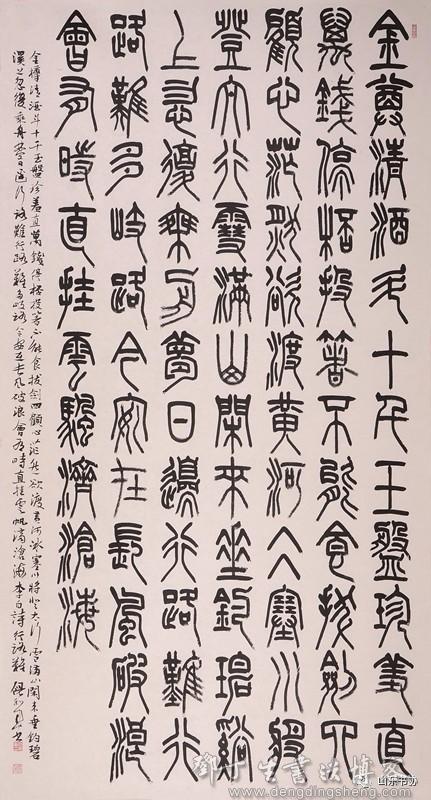 金尊清酒斗十千玉盤珍羞直
萬錢停桮投箸不能食拔劍四
顧心茫然欲渡黃河冰塞川將
登太行雪滿山閒來垂釣碧谿
上忽復乘舟夢日邊行路難行
路難多岐路今安在長風破浪
會有時直挂雲帆濟滄海
金樽清酒斗十千玉盤珍羞直萬錢停桮投箸不能食拔劍四顧心茫然欲渡黃河冰塞川將登太行雪滿山閑來垂釣碧
溪上忽復乘舟夢日邊行路難行路難多岐路今安在長風破浪會有時直挂雲帆濟滄海李白詩行路難
鄧丁生書法博客
www.dengdingsheng.com